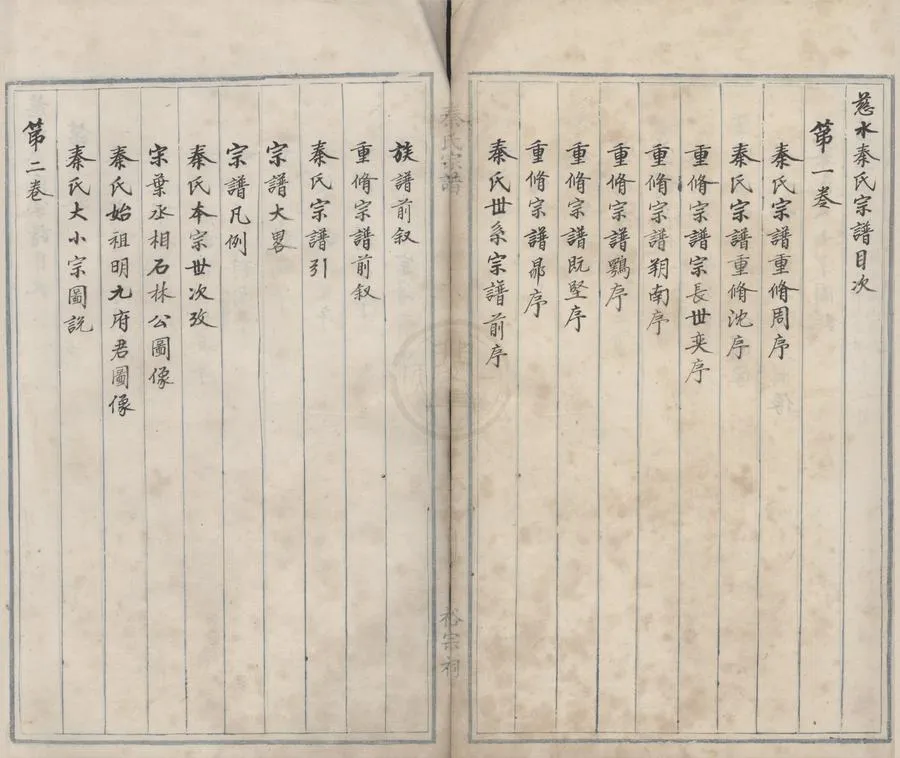 慈水秦氏宗譜目次
第一卷
秦氏宗譜重脩周序
秦氏宗譜重脩沈序
重脩宗譜宗長世奕序
重脩宗譜朔南序
重脩宗譜鶚序
重脩宗譜既堅序
重脩宗譜鼎序
秦氏世系宗譜前序
秦氏宗譜
裕宗祠
族譜前叙
重脩宗譜前叙
秦氏宗譜引
宗譜大畧
宗譜凡例
秦氏本宗世次攷
宋葉丞相石林公圖像
秦氏始祖明九府君圖像
秦氏大小宗圖説
第二卷